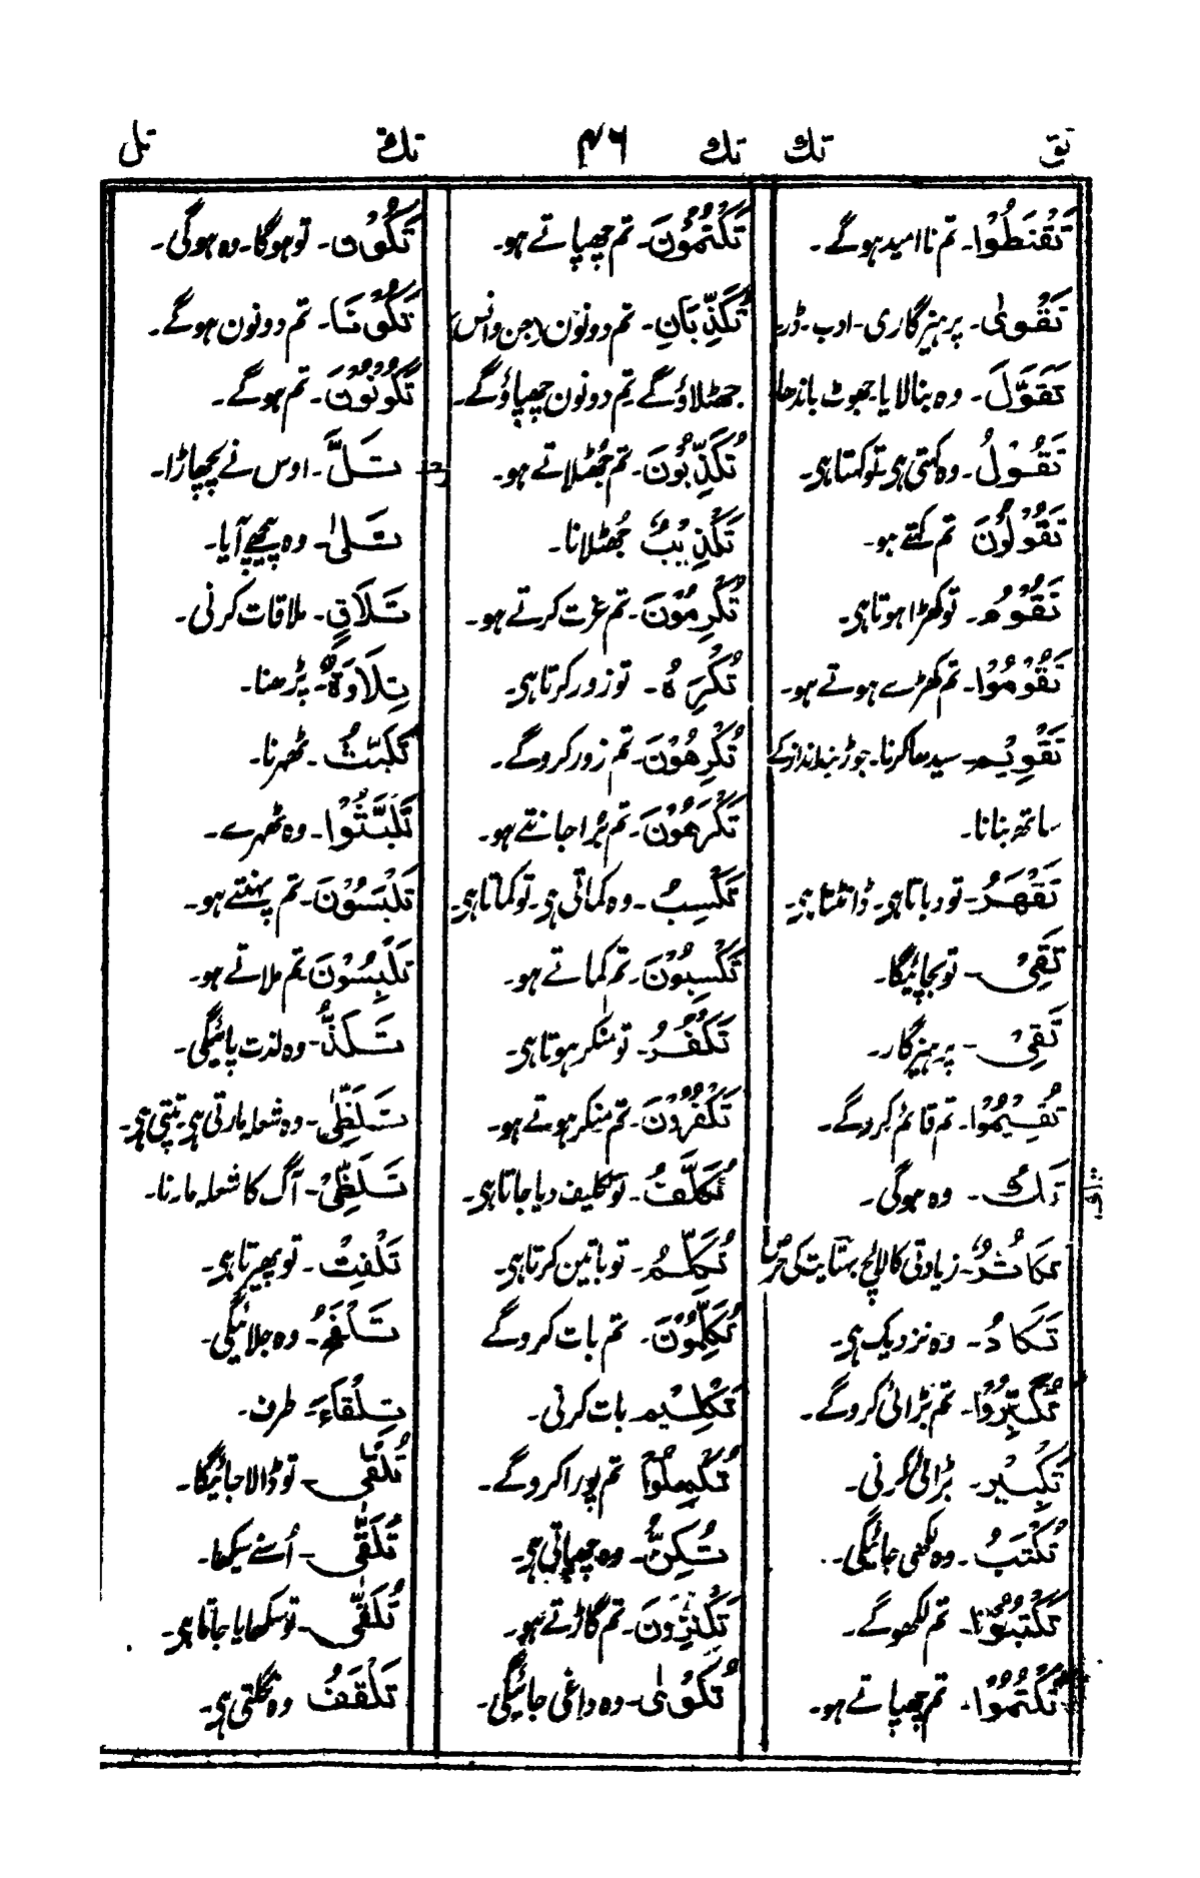 تق
تك
تك
۴۶
تك
تل
تَقْنَطُوْا۔ تم نا امید ہوگے۔
تَقْوٰی۔ پرہیزگاری۔ ادب۔ ڈر
تَقَوَّلَ۔ وہ بنا لایا۔ جھوٹ باندھا
تَقُوْلُ۔ وہ کہتی ہی۔ تو کہتا ہی۔
تَقُوْلُوْنَ تم کہتے ہو۔
تَقُوْمُ۔ تو کھڑا ہوتا ہی۔
تَقُوْمُوْا۔ تم کھڑے ہوتے ہو۔
تَقْوِیْم۔ سیدھا کرنا۔ جوڑ بند انداز کے
ساتھ بنانا۔
تَقْهَرْ۔ تو دباتا ہی۔ ڈانٹتا ہی۔
تَقِیْ۔ تو بچائیگا۔
تَقِیْ۔ پرہیزگار۔
تُقِیْمُوْا۔ تم قائم کروگے۔
تَكُ۔ وہ ہوگی۔
تَكَاثُرٌ۔ زیادتی کا لالچ بہتایت کی حرص
تَكَادُ۔ وہ نزدیک ہی۔
تُكَبِّرُوْا۔ تم بڑائی کروگے۔
تَكْبِیْر۔ بڑائی کرنی۔
تُكْتَبُ۔ وہ لکھی جائیگی۔
تَكْتُبُوْا۔ تم لکھوگے۔
تَكْتُمُوْا۔ تم چھپاتے ہو۔
تَكْتُمُوْنَ۔ تم چھپاتے ہو۔
تُكَذِّبَانِ۔ تم دونوں (جن و انس)
جھٹلاؤگے تم دونوں چھپاؤگے۔
تُكَذِّبُوْنَ۔ تم جُھٹلاتے ہو۔
تَكْذِیْبٌ جُھٹلانا۔
تُكْرِمُوْنَ۔ تم عزت کرتے ہو۔
تُكْرِهُ۔ تو زور کرتا ہی۔
تُكْرِهُوْنَ۔ تم زور کروگے۔
تَكْرَهُوْنَ۔ تم بُرا جانتے ہو۔
تَكْسِبُ۔ وہ کماتی ہی۔ تو کماتا ہی۔
تَكْسِبُوْنَ۔ تم کماتے ہو۔
تَكْفُرُ۔ تو منکر ہوتا ہی۔
تَكْفُرُوْنَ۔ تم منکر ہوتے ہو۔
تُكَلَّفُ۔ تو تکلیف دیا جاتا ہی۔
تُكَلِّمُ۔ تو باتین کرتا ہی۔
تُكَلِّمُوْنَ۔ تم بات کروگے
تَكْلِیْم بات کرنی۔
تُكْمِلُوْا تم پورا کروگے۔
تُكِنُّ۔ وہ چھپاتی ہی۔
تَكْنِزُوْنَ۔ تم گاڑتے ہو۔
تُكْوٰی۔ وہ داغی جائیگی۔
تَكُوْنُ۔ تو ہوگا۔ وہ ہوگی۔
تَكُوْنَا۔ تم دونون ہوگے۔
تَكُوْنُوْنَ۔ تم ہوگے۔
تَلَّ۔ اوس نے پچھاڑا۔
تَلٰی۔ وہ پیچھے آیا۔
تَلَاقٍ۔ ملاقات کرنی۔
تِلَاوَةٌ۔ پڑھنا۔
تَلَبُّثٌ۔ ٹھرنا۔
تَلَبَّثُوْا۔ وہ ٹھہرے۔
تَلْبَسُوْنَ۔ تم پہنتے ہو۔
تَلْبِسُوْنَ تم ملاتے ہو۔
تَلَذُّ۔ وہ لذت پائیگی۔
تَلَظّٰی۔ وہ شعلہ مارتی ہی۔ تپتی ہی۔
تَلَظِّیْ۔ آگ کا شعلہ مارنا۔
تَلْفِتُ۔ تو پھیرتا ہی۔
تَلْفَحُ۔ وہ جلائیگی۔
تِلْقَاءَ۔ طرف۔
تُلْقٰی۔ تو ڈالا جائیگا۔
تَلَقّٰی۔ اُسنے سیکھا۔
تُلَقّٰی۔ تو سکھایا جاتا ہی۔
تَلْقَفُ وہ نگلتی ہی۔